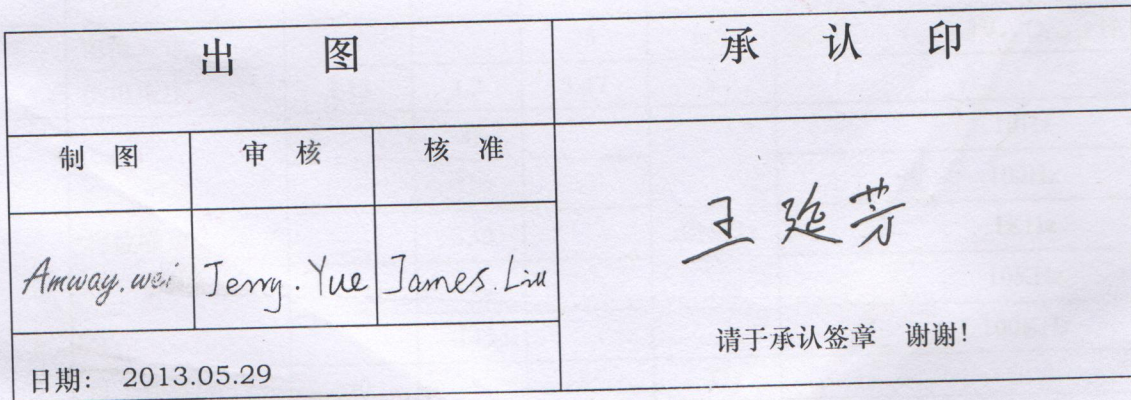 出 图
承 认 印
制 图
审 核
核 准
Amway.wei
Jerry.Yue
James.Liu
王延芳
请于承认签章 谢谢!
日期: 2013.05.29